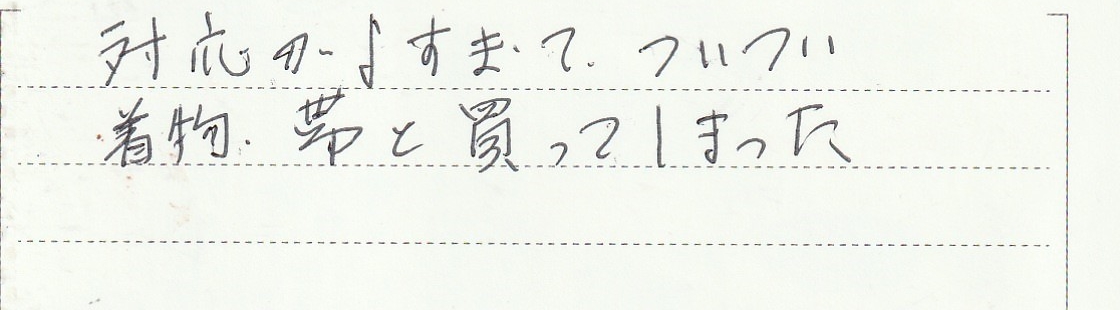 対応がよすぎて、ついつい
着物、帯と買ってしまった